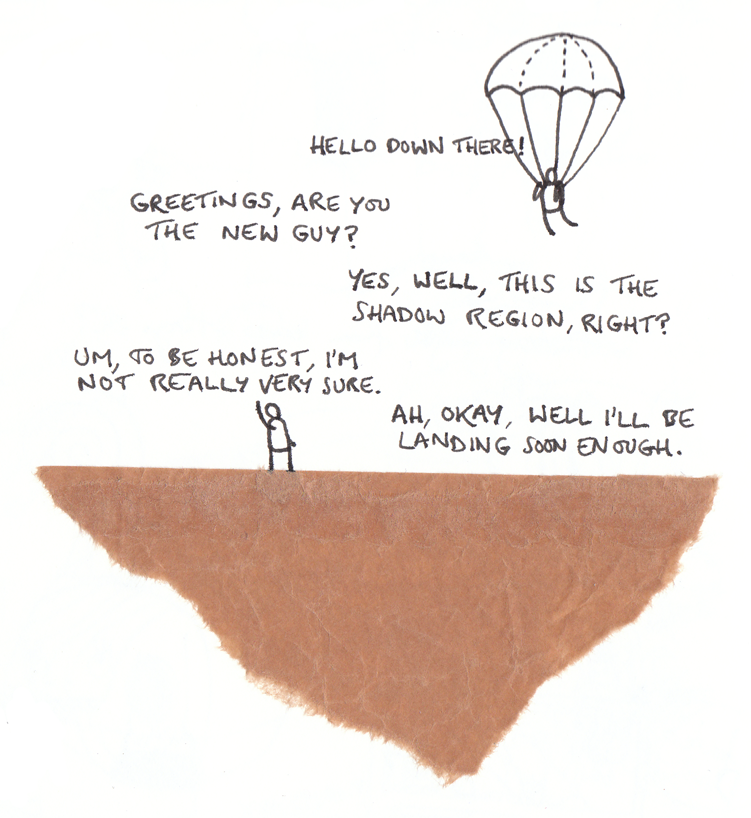 HELLO DOWN THERE!
GREETINGS, ARE YOU
THE NEW GUY?
YES, WELL, THIS IS THE
SHADOW REGION, RIGHT?
UM, TO BE HONEST, I'M
NOT REALLY VERY SURE.
AH, OKAY, WELL I'LL BE
LANDING SOON ENOUGH.